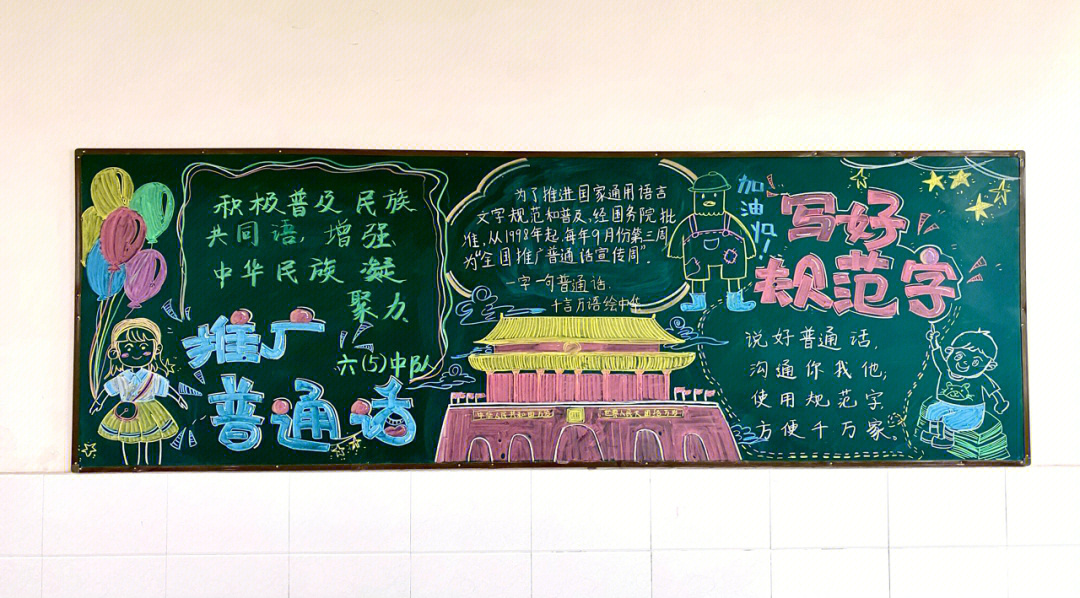 积极普及民族
共同语,增强
中华民族凝
聚力、
推广
普通话
六(5)中队
为了推进国家通用语言
文字规范和普及,经国务院批
准,从1998年起,每年9月份第三周
为"全国推广普通话宣传周".
一字一句普通话.
千言万语绘中华
中华人民共和国万岁
世界人民大团结万岁
加油哦!
写好
规范字
说好普通话,
沟通你我他;
使用规范字
方便千万家。